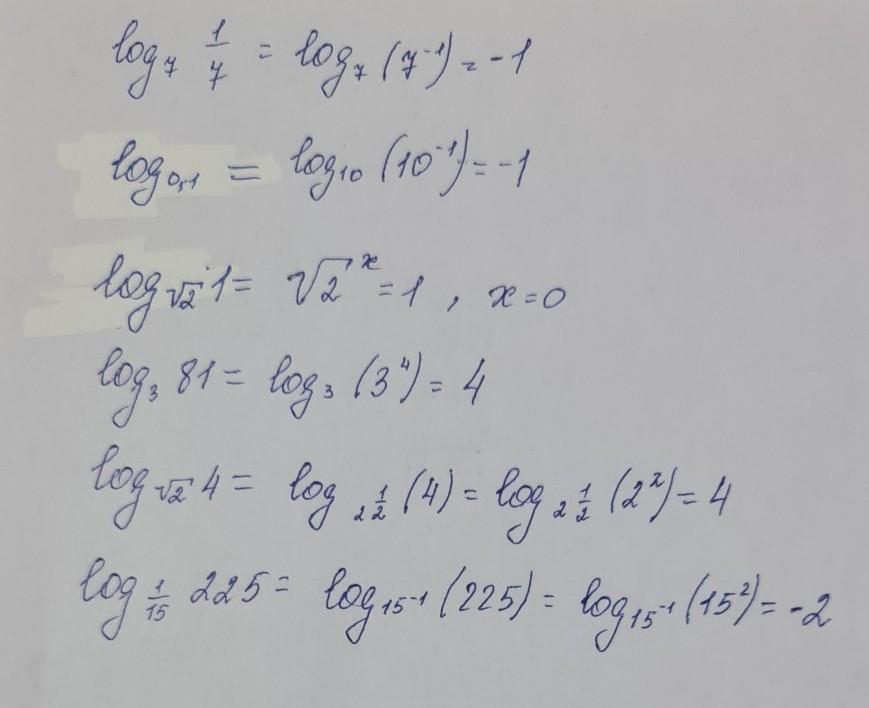 log₇ 1/7 = log₇ (7⁻¹) = -1
log₀,₁ = log₁₀ (10⁻¹) = -1
log_√2 1 = √2ˣ = 1 , x = 0
log₃ 81 = log₃ (3⁴) = 4
log_√2 4 = log_2^(1/2) (4) = log_2^(1/2) (2²) = 4
log_1/15 225 = log_15⁻¹ (225) = log_15⁻¹ (15²) = -2